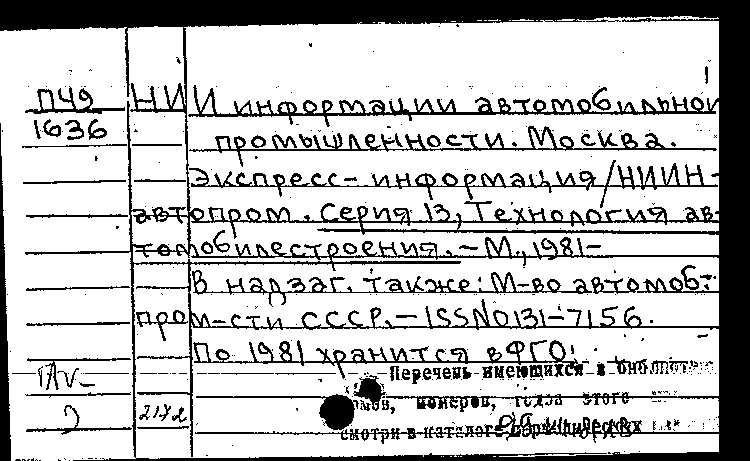 1
П49 НИИ информации автомобильной
1636 промышленности. Москва.
Экспресс-информация/НИИН-
автопром. Серия 13, Технология ав-
томобилестроения. - М., 1981-
В надзаг. также: М-во автомоб.
пром-сти СССР. - ISSN 0131-7156.
По 1981 хранится в ФГО.
Перечень имеющихся в библиотеке
томов, номеров, года этого
2172
смотри в каталоге